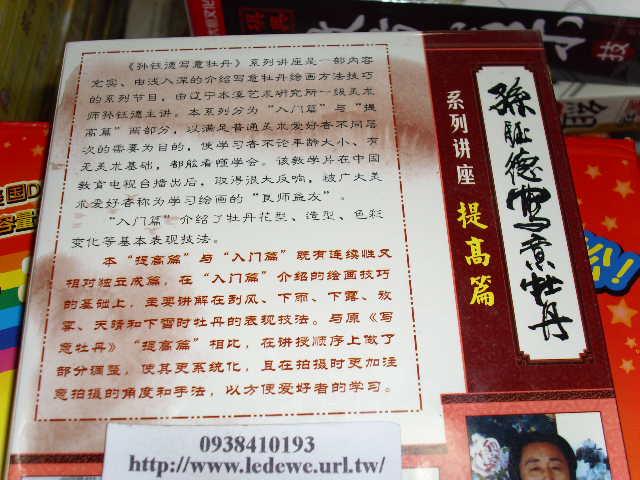 《孙钰德写意牡丹》系列讲座是一部内容
充实、由浅入深的介绍写意牡丹绘画方法技巧
的系列节目，由辽宁本溪艺术研究所一级美术
师孙钰德主讲。本系列分为“入门篇”与“提
高篇”两部分，以满足普通美术爱好者不同层
次的需要为目的，使学习者不论年龄大小、有
无美术基础，都能看懂学会。该教学片在中国
教育电视台播出后，取得很大反响，被广大美
术爱好者称为学习绘画的“良师益友”。
“入门篇”介绍了牡丹花型、造型、色彩
变化等基本表现技法。
本“提高篇”与“入门篇”既有连续性又
相对独立成篇，在“入门篇”介绍的绘画技巧
的基础上，主要讲解在刮风、下雨、下露、放
雾、天晴和下雪时牡丹的表现技法。与原《写
意牡丹》“提高篇”相比，在讲授顺序上做了
部分调整，使其更系统化，且在拍摄时更加注
意拍摄的角度和手法，以方便爱好者的学习。
孫鈺德寫意牡丹
系列讲座 提高篇
0938410193
http://www.ledewe.url.tw/
技
容量